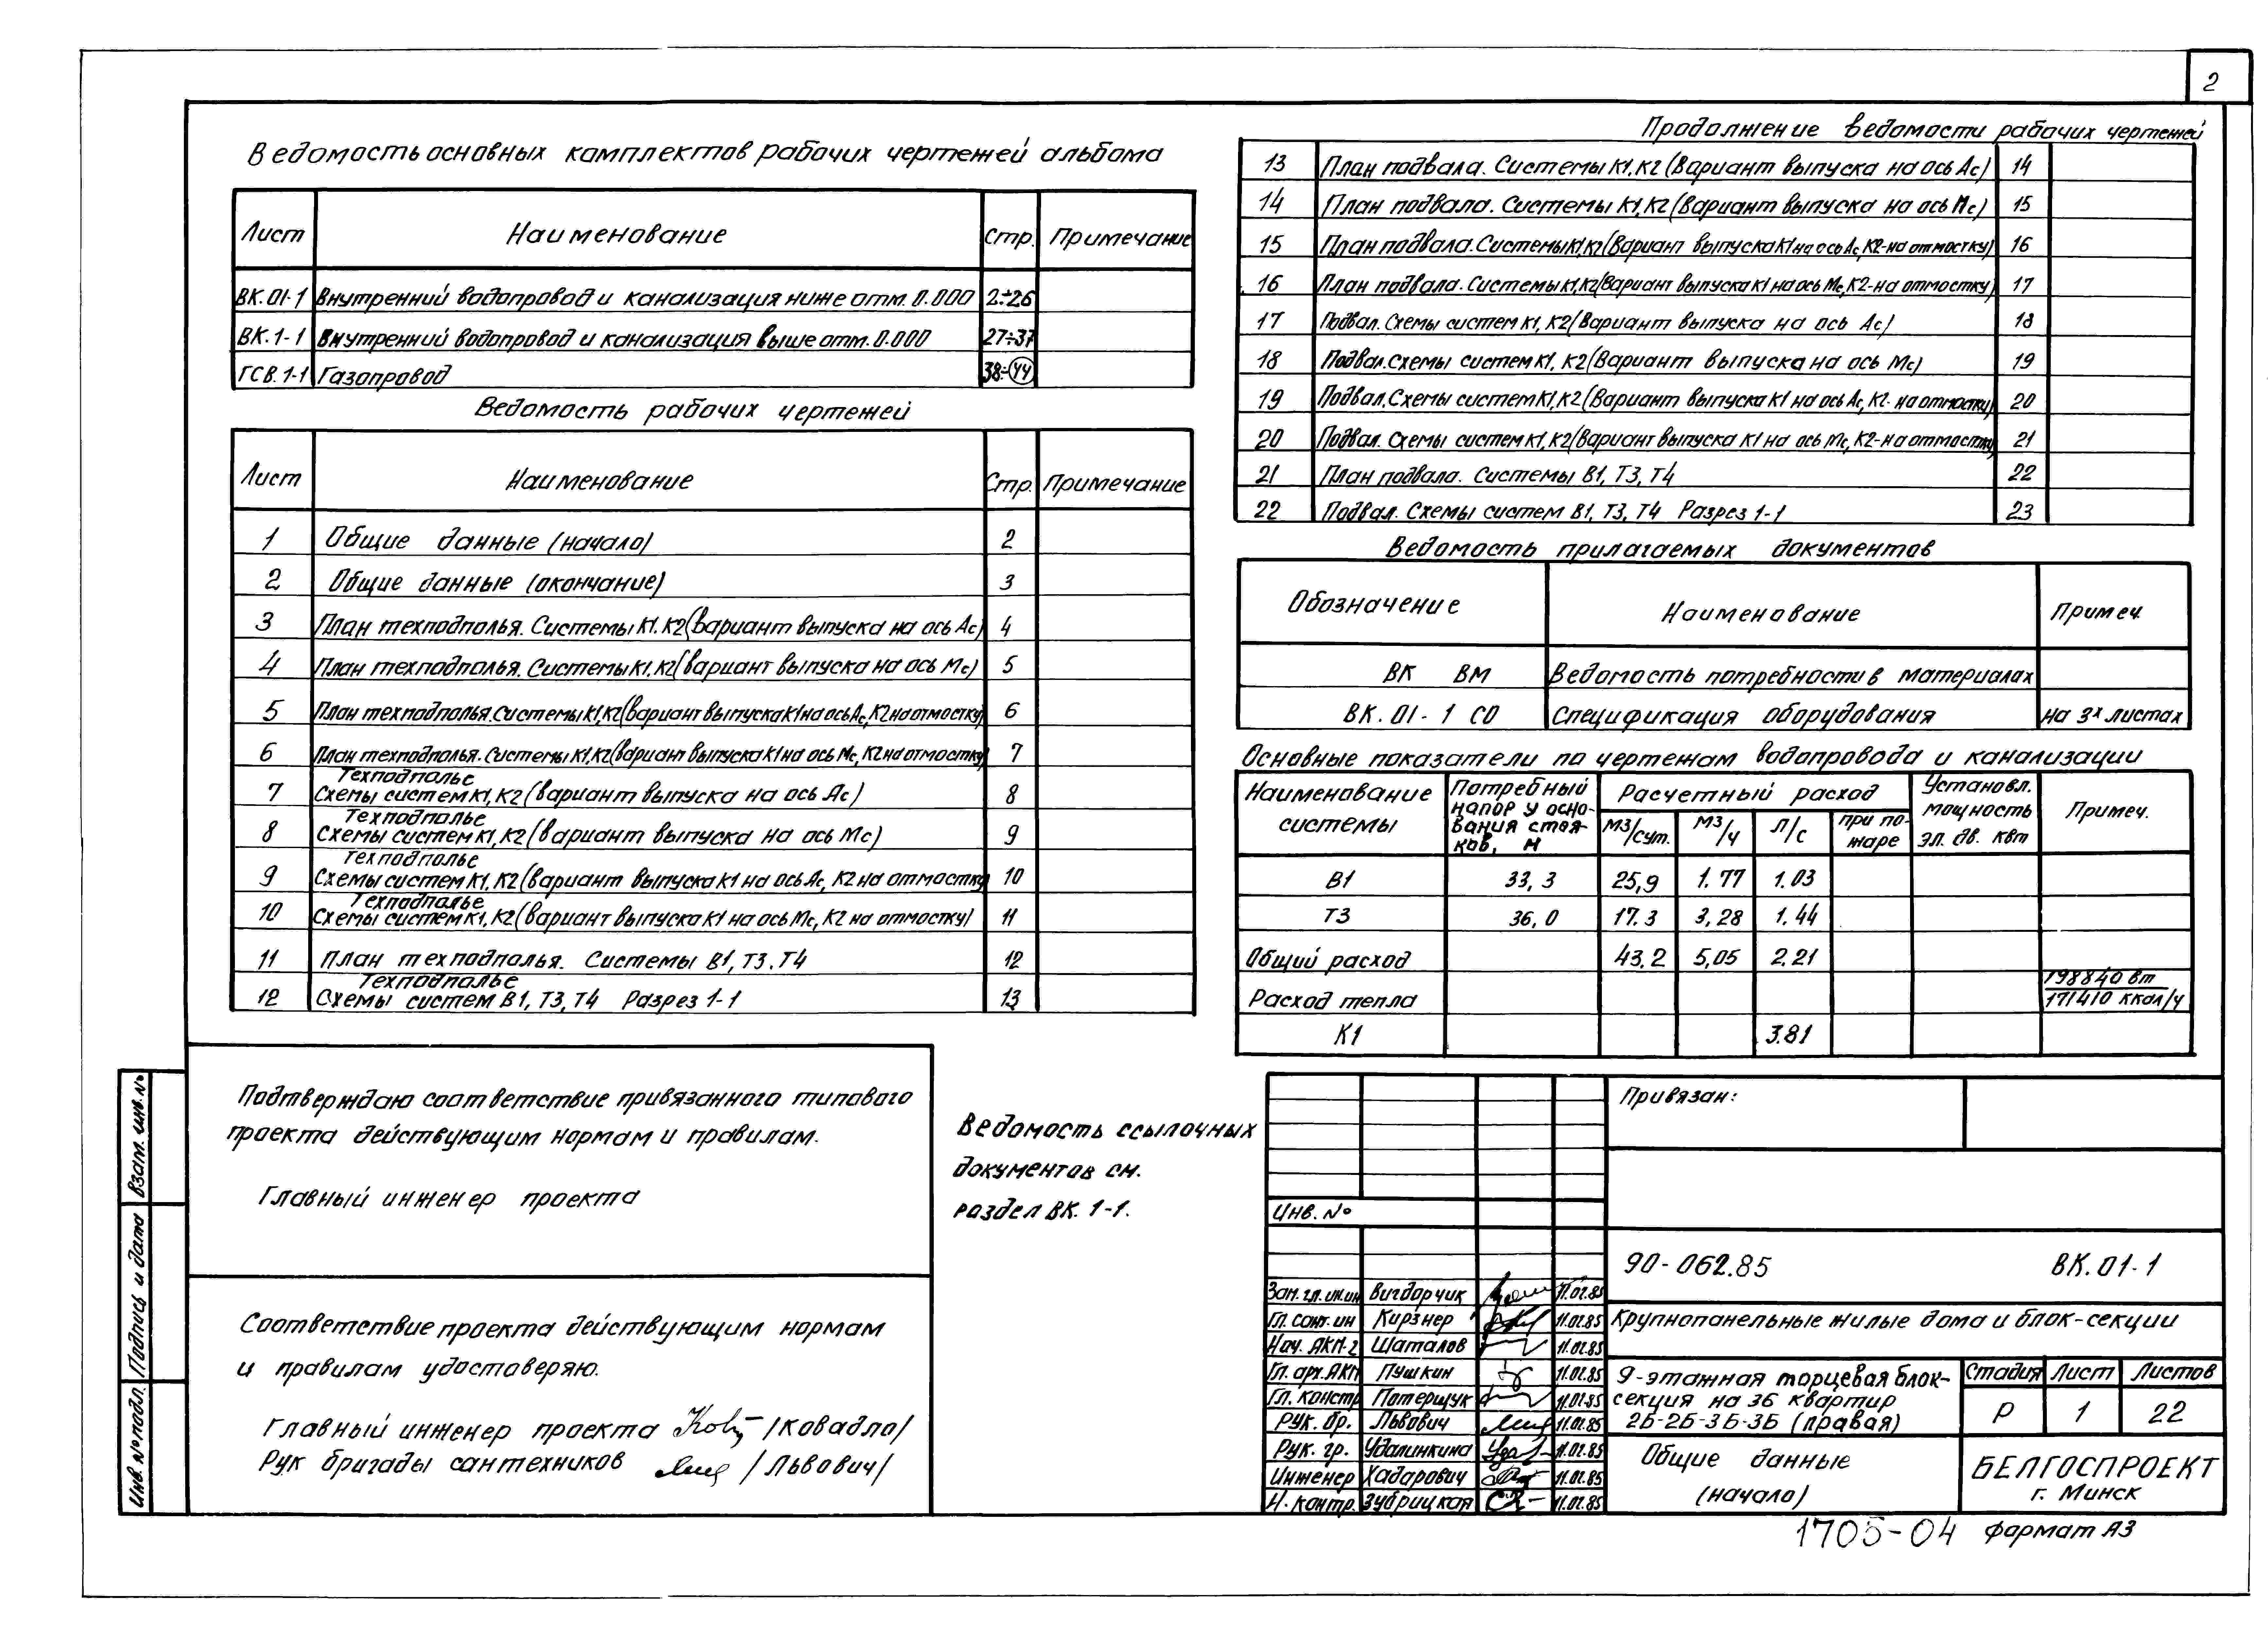 2
Ведомость основных комплектов рабочих чертежей альбома
Лист Наименование Стр. Примечание
ВК.01-1 Внутренний водопровод и канализация ниже отм. 0.000 2÷26
ВК.1-1 Внутренний водопровод и канализация выше отм. 0.000 27÷37
ГСВ.1-1 Газопровод 38÷44
Ведомость рабочих чертежей
Лист Наименование Стр. Примечание
1 Общие данные (начало) 2
2 Общие данные (окончание) 3
3 План техподполья. Системы К1.К2 (вариант выпуска на ось Ас) 4
4 План техподполья. Системы К1,К2 (вариант выпуска на ось Мс) 5
5 План техподполья. Системы К1,К2 (вариант выпуска К1 на ось Ас, К2 на отмостку) 6
6 План техподполья. Системы К1,К2 (вариант выпуска К1 на ось Мс, К2 на отмостку) 7
Техподполье
7 Схемы систем К1,К2 (вариант выпуска на ось Ас) 8
Техподполье
8 Схемы систем К1,К2 (вариант выпуска на ось Мс) 9
Техподполье
9 Схемы систем К1,К2 (вариант выпуска К1 на ось Ас, К2 на отмостку 10
Техподполье
10 Схемы систем К1,К2 (вариант выпуска К1 на ось Мс, К2 на отмостку) 11
11 План техподполья. Системы В1, Т3, Т4 12
Техподполье
12 Схемы систем В1, Т3, Т4 Разрез 1-1 13
Продолжение ведомости рабочих чертежей
13 План подвала. Системы К1, К2 (Вариант выпуска на ось Ас) 14
14 План подвала. Системы К1, К2 (Вариант выпуска на ось Мс) 15
15 План подвала. Системы К1,К2 (Вариант выпуска К1 на ось Ас, К2-на отмостку) 16
16 План подвала. Системы К1,К2 (Вариант выпуска К1 на ось Мс, К2-на отмостку) 17
17 Подвал. Схемы систем К1, К2 (Вариант выпуска на ось Ас) 18
18 Подвал. Схемы систем К1, К2 (Вариант выпуска на ось Мс) 19
19 Подвал. Схемы систем К1, К2 (Вариант выпуска К1 на ось Ас, К2- на отмостку) 20
20 Подвал. Схемы систем К1, К2 (Вариант выпуска К1 на ось Мс, К2-на отмостку 21
21 План подвала. Системы В1, Т3, Т4 22
22 Подвал. Схемы систем В1, Т3, Т4 Разрез 1-1 23
Ведомость прилагаемых документов
Обозначение Наименование Примеч.
ВК ВМ Ведомость потребности в материалах
ВК.01-1 СО Спецификация оборудования на 3х листах
Основные показатели по чертежам водопровода и канализации
Наименование системы Потребный напор у основания стояков, м Расчетный расход Установл. мощность эл. дв. квт Примеч.
м3/сут. м3/ч л/с при пожаре
В1 33,3 25,9 1.77 1.03
Т3 36,0 17.3 3,28 1.44
Общий расход 43.2 5,05 2.21
Расход тепла 198840 вт
171410 ккал/ч
К1 3.81
Подтверждаю соответствие привязанного типового
проекта действующим нормам и правилам.
Главный инженер проекта
Соответствие проекта действующим нормам
и правилам удостоверяю.
Главный инженер проекта /Ковадло/
Рук бригады сантехников /Львович/
Ведомость ссылочных
документов см.
раздел ВК. 1-1.
Взам. инв. №
Подпись и дата
Инв. № подл.
Привязан:
Инв. №
Зам. гл. инж Вигдорчик 11.02.85
Гл. сант. ин Кирзнер 11.02.85
Нач. АКМ-2 Шаталов 11.02.85
Гл. арх. АКМ Пушкин 11.02.85
Гл. констр Потерщук 11.02.85
Рук. бр. Львович 11.02.85
Рук. гр. Удалинкина 11.02.85
Инженер Хадарович 11.02.85
Н. контр. Зубрицкая 11.02.85
90-062.85 ВК.01-1
Крупнопанельные жилые дома и блок-секции
9-этажная торцевая блок-
секция на 36 квартир
2Б-2Б-3Б-3Б (правая)
Стадия Лист Листов
Р 1 22
Общие данные
(начало)
БЕЛГОСПРОЕКТ
г. Минск
1705-04 Формат А3